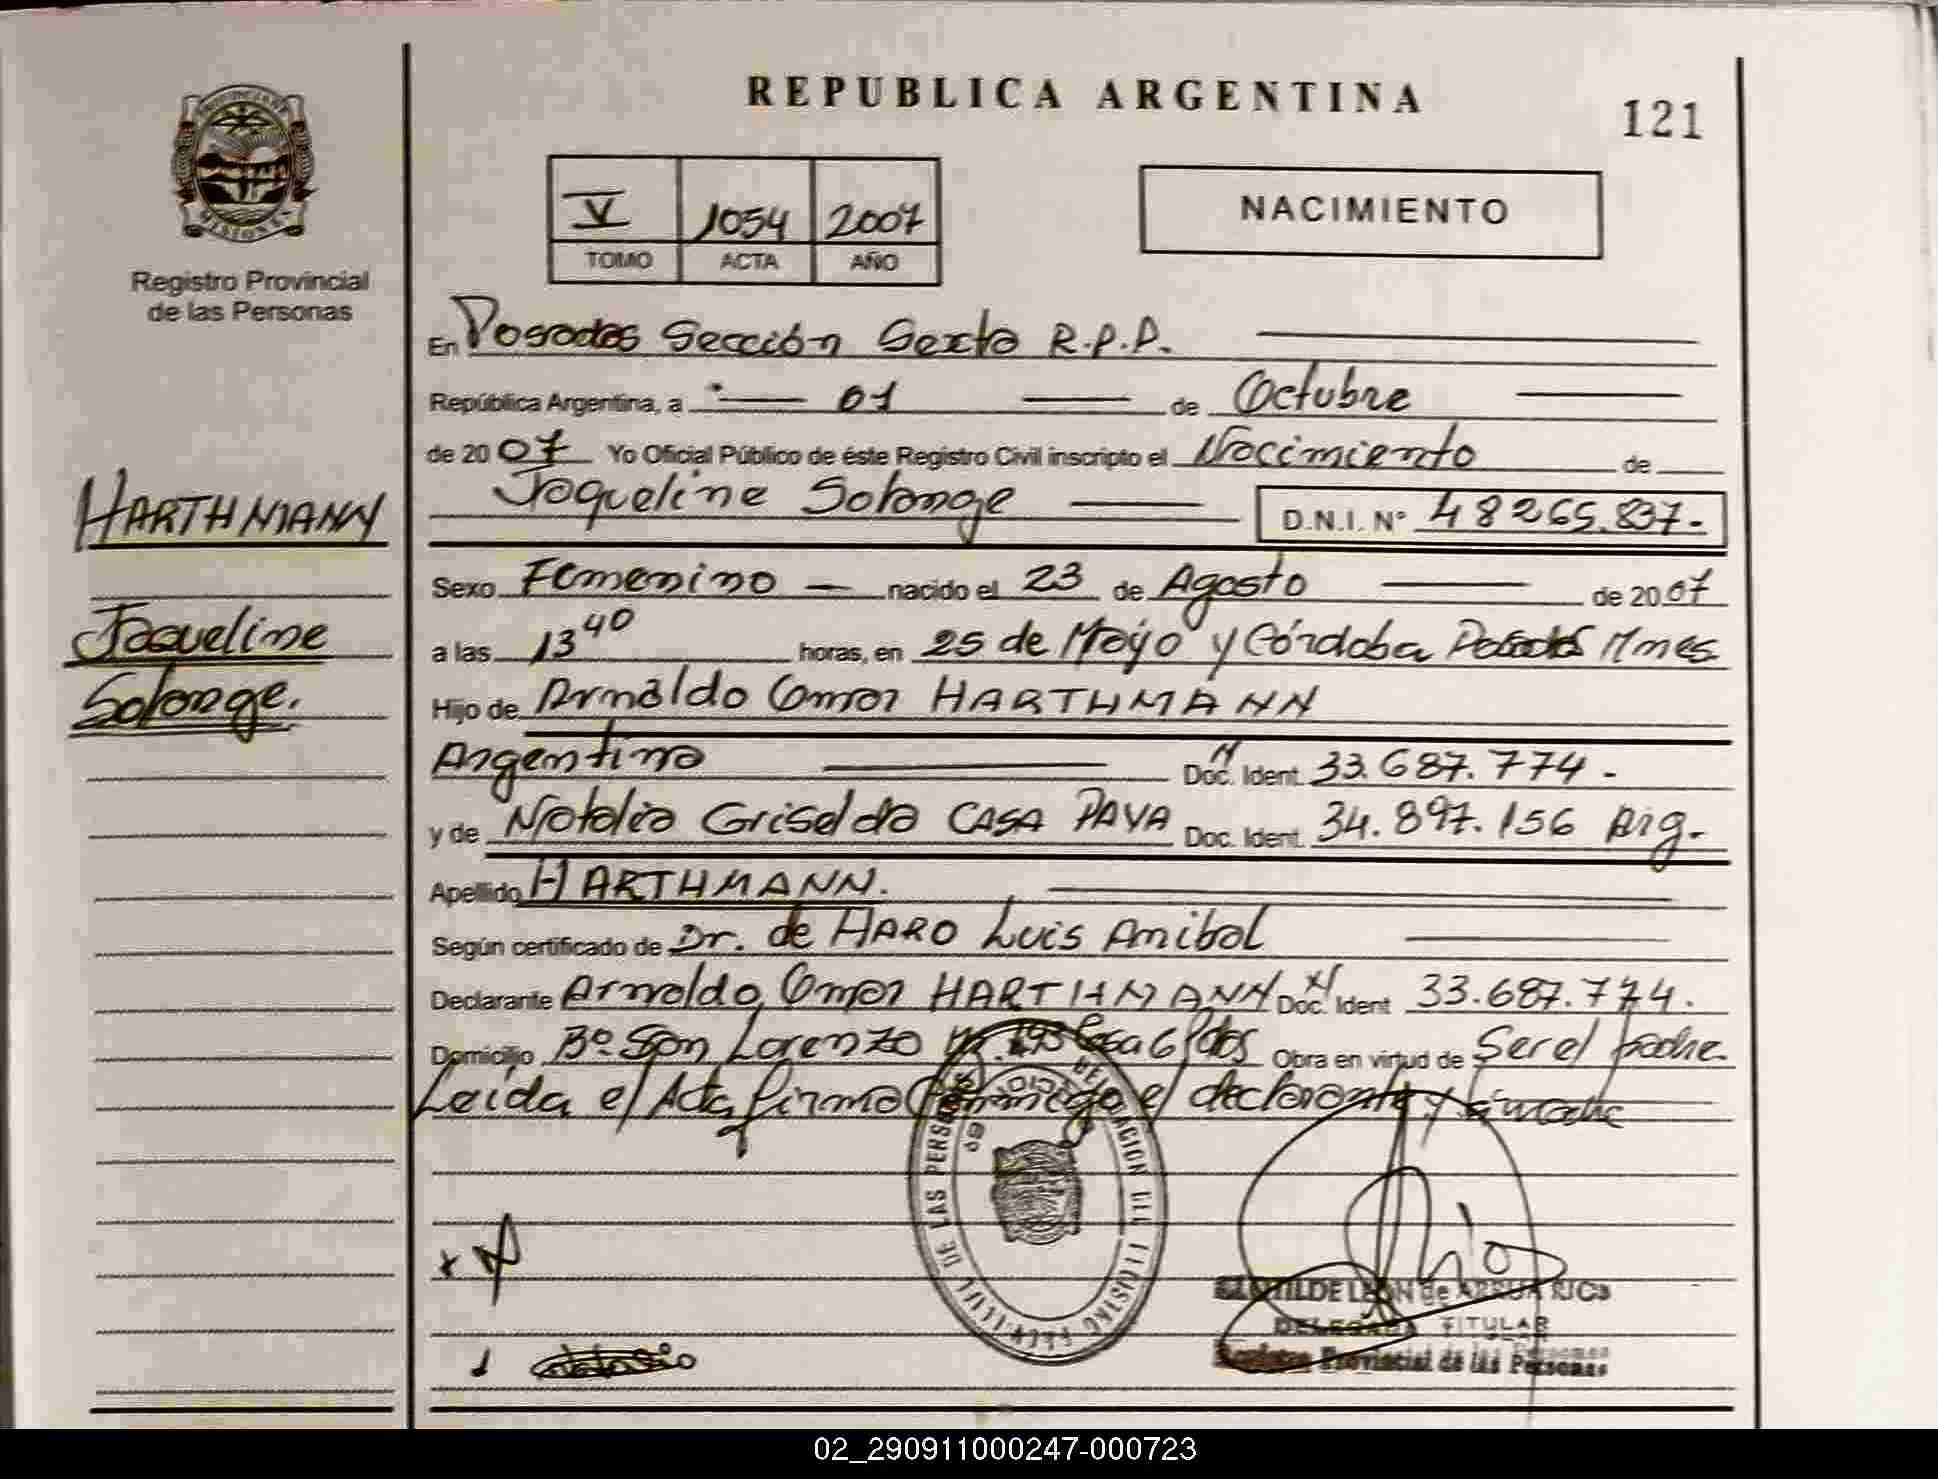 REPUBLICA ARGENTINA
121
PROVINCIA DE
MISIONES
Registro Provincial
de las Personas
V 1054 2007
TOMO ACTA AÑO
NACIMIENTO
En Posadas Sección Sexta R.P.P.
República Argentina, a 01 de Octubre
de 2007 Yo Oficial Público de éste Registro Civil inscripto el Nacimiento de
Jaqueline Solange D.N.I. Nº 48265.837-
HARTHMANN
Jaqueline
Solange.
Sexo Femenino nacido el 23 de Agosto de 2007
a las 13 40 horas, en 25 de Mayo y Córdoba Posadas Mnes
Hijo de Arnaldo Omar HARTHMANN
Argentina Doc. Ident. 33.687.774-
y de Natalia Griselda CASA PAVA Doc. Ident. 34.897.156 Arg.
Apellido HARTHMANN.
Según certificado de Dr. de HARO Luis Anibal
Declarante Arnaldo Omar HARTHMANN Doc. Ident 33.687.774.
Domicilio Bº San Lorenzo Casa 6 Pdas Obra en virtud de Ser el padre
Leída el Acta firma conmigo el declarante y
DE LAS PERSONAS
TITULAR
Registro Provincial de las Personas
02_290911000247-000723